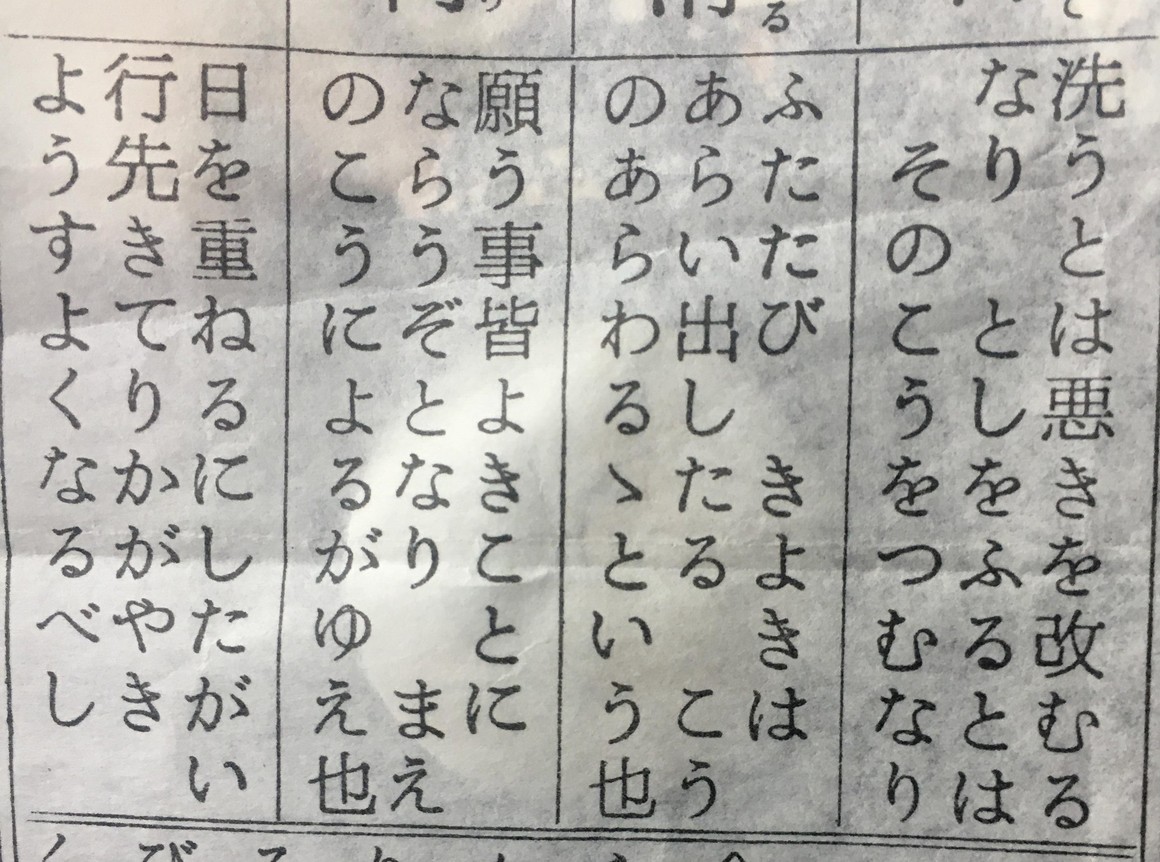 洗うとは悪きを改むる
なり　としをふるとは
そのこうをつむなり
ふたたび　きよきは
あらい出したる　こう
のあらわるゝという也
願う事皆よきことに
ならうぞとなり　まえ
のこうによるがゆえ也
日を重ねるにしたがい
行先きてりかがやき
ようすよくなるべし